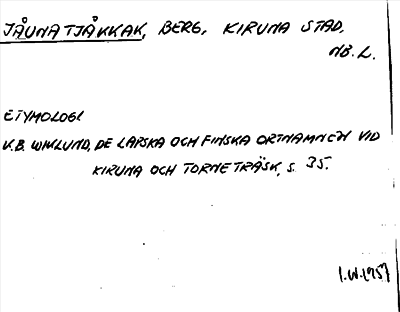 JÅUNATJÅKKAK, BERG, KIRUNA STAD,
NB. L.
ETYMOLOGI
K.B. WIKLUND, DE LAPSKA OCH FINSKA ORTNAMNEN VID
KIRUNA OCH TORNETRÄSK, S. 35.
I.W. 1957